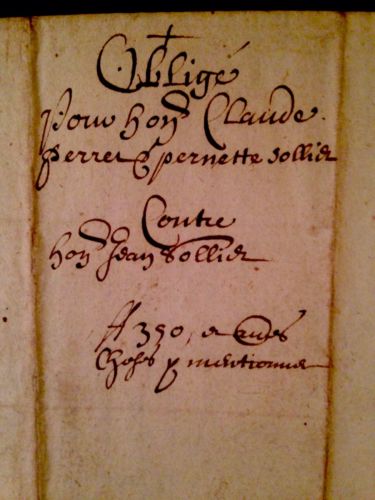 Obligé
Pour hon Claude
Perret & pernette sollier
Contre
hon Jean Sollier
ff 350, et aues
Choses y mentionnes